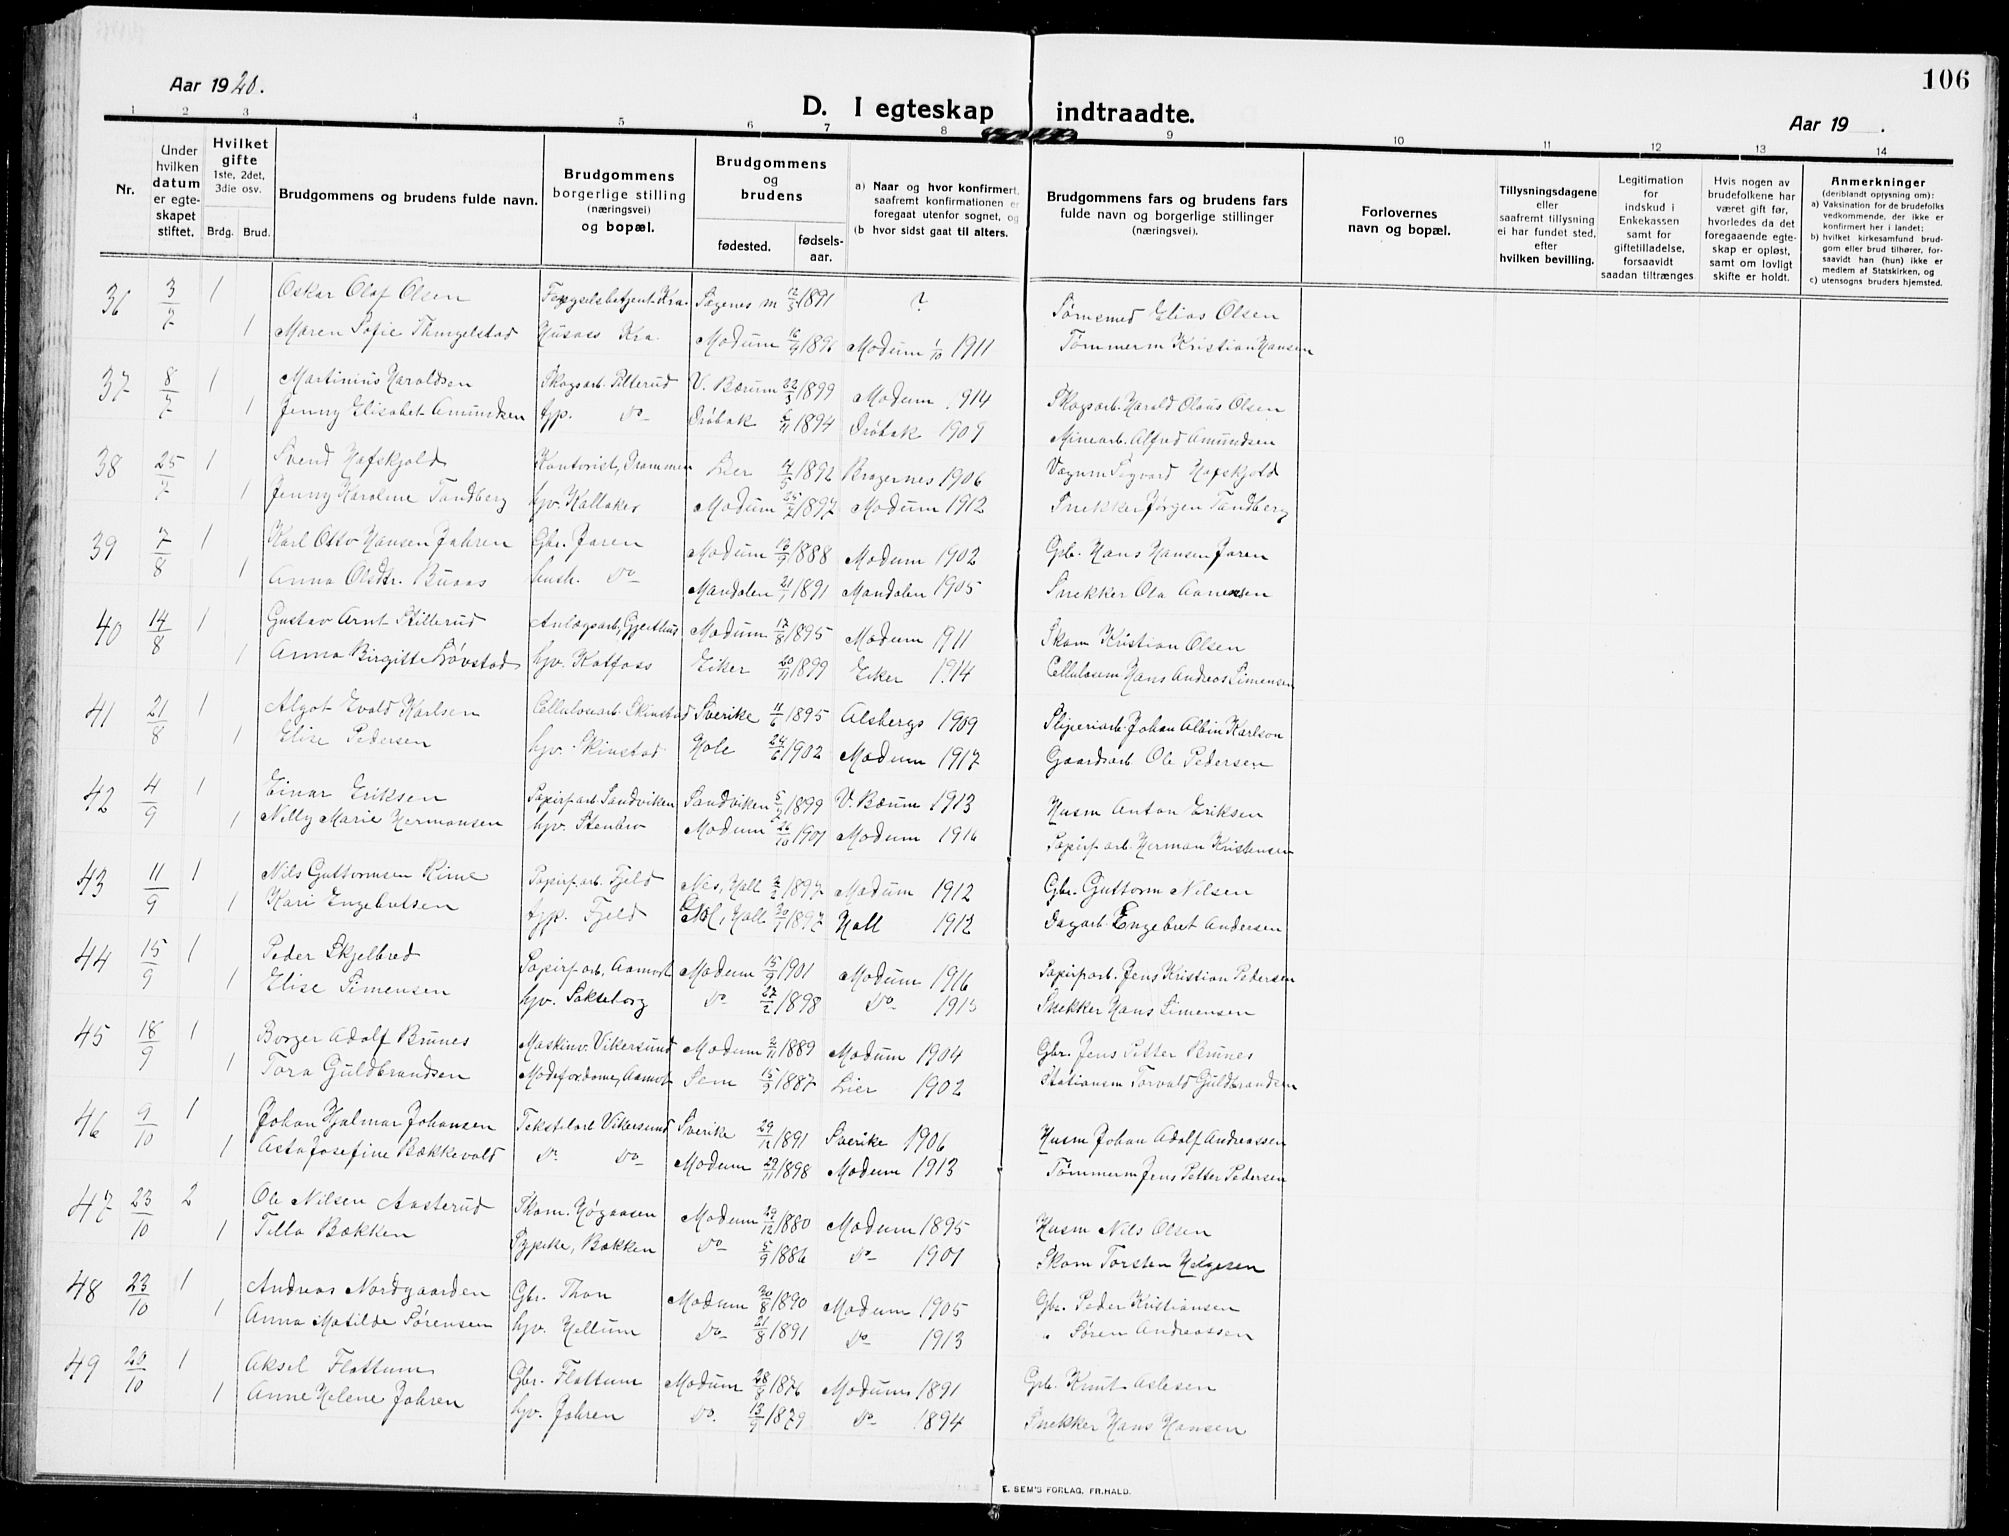 106
Aar 1920.
D. I egteskap indtraadte.
Aar 19 .
1 2 3 4 5 6 7 8 9 10 11 12 13 14
Nr.
Under hvilken datum er egteskapet stiftet.
Hvilket gifte 1ste, 2det, 3die osv.
Brdg. Brud.
Brudgommens og brudens fulde navn.
Brudgommens borgerlige stilling (næringsvei) og bopæl.
Brudgommens og brudens
fødested. fødselsaar.
a) Naar og hvor konfirmert, saafremt konfirmationen er foregaat utenfor sognet, og
(b hvor sidst gaat til alters.
Brudgommens fars og brudens fars fulde navn og borgerlige stillinger (næringsvei).
Forlovernes navn og bopæl.
Tillysningsdagene eller saafremt tillysning ei har fundet sted, efter hvilken bevilling.
Legitimation for indskud i Enkekassen samt for giftetilladelse, forsaavidt saadan tiltrænges
Hvis nogen av brudefolkene har været gift før, hvorledes da det foregaaende egteskap er opløst, samt om lovligt skifte er holdt.
Anmerkninger (deriblandt oplysning om):
a) Vaksination for de brudefolks vedkommende, der ikke er konfirmert her i landet;
b) hvilket kirkesamfund brudgom eller brud tilhører, forsaavidt han (hun) ikke er medlem af Statskirken, og
c) utensogns bruders hjemsted.
36 3/7 1 Oskar Olaf Olsen Fengselsbetjent Kra. Sagenes m 12/5 1891 ? Sømsmed Elias Olsen
1 Maren Sofie Thingelstad Husass Kra. Modum 16/9 1896 Modum 1/10 1911 Tømmerm Kristian Hansen
37 8/7 1 Martinius Haraldsen Skogsarb. Pilterud V. Bærum 22/3 1899 Modum 1914 Skogsarb. Harald Olaus Olsen
1 Jenny Elisabet Amundsen tjp. do Drøbak 6/11 1894 Drøbak 1909 Minearb. Alfred Amundsen
38 25/7 1 Svend Hafskjold Kontorist, Drammen Lier 14/5 1892 Bragernes 1906 Vognm Sigvard Hafskjold
1 Jenny Karoline Tandberg hjv. Kallaker Modum 25/2 1897 Modum 1912 Snekker Jørgen Tandberg
39 7/8 1 Karl Otto Hansen Jahren Gbr. Jaren Modum 12/9 1888 Modum 1902 Gb. Hans Hansen Jaren
1 Anna Olsdtr. Buaas hush. do Mandalen 21/1 1891 Mandalen 1905 Snekker Ola Aanensen
40 14/8 1 Gustav Arnt Stillerud Anlægsarb, Gjeithus Modum 17/8 1895 Modum 1911 Skom Kristian Olsen
1 Anna Birgitte Løvstad hjv. Katfoss Eiker 20/11 1899 Eiker 1914 Cellulosem Hans Andreas Simensen
41 21/8 1 Algot Evald Karlsen Cellulosearb. Skinstad Sverike 11/6 1895 Alsbergs 1909 Sliperiarb Johan Albin Karlson
1 Elise Pedersen hjv. Skinstad Hole 24/6 1902 Modum 1917 Gaardsarb Ole Pedersen
42 4/9 1 Einar Eriksen Papirf.arb. Sandviken Sandviken 5/2 1899 V. Bærum 1913 Husm Anton Eriksen
1 Nilly Marie Hermansen hjv. Stenbro Modum 26/10 1901 Modum 1916 Papirf arb. Herman Kristensen
43 11/9 1 Nils Guttormsen Rime Papirf.arb. Fjeld Nes, Hall 2/2 1897 Modum 1912 Gbr. Guttorm Nilsen
1 Kari Engebretsen tjp. Fjeld Gol, Hall 20/7 1897 Hall 1912 Dagarb. Engebret Andersen
44 15/9 1 Peder Skjelbred Papirf arb, Aamot Modum 15/9 1901 Modum 1916 Papirf arb. Jens Kristian Pedersen
1 Elise Simensen hjv. Sakseborg do 27/2 1898 do 1913 Snekker Hans Simensen
45 18/9 1 Borger Adolf Brunes Maskinv. Vikersund Modum 2/11 1889 Modum 1904 Gbr. Jens Petter Brunes
1 Tora Guldbrandsen Modeforr.dame, Aamot Sem 15/9 1887 Lier 1902 Stationsm Torvald Guldbrandsen
46 9/10 1 Johan Hjalmar Johansen Tekstilarb Vikersund Sverike 29/12 1891 Sverike 1906 Husm Johan Adolf Andreassen
1 Asta Josefine Bækkevold do do Modum 29/11 1898 Modum 1913 Tømmerm Jens Petter Pedersen
47 23/10 2 Ole Nilsen Aasterud Skom. Høgaasen Modum 29/12 1880 Modum 1895 Husm Nils Olsen
1 Tilla Bækken Sypike, Bækken do 5/9 1886 do 1901 Skom Torsten Helgesen
48 23/10 1 Andreas Nordgaarden Gbr. Thon Modum 20/8 1890 Modum 1905 Gbr. Peder Kristiansen
1 Anna Matilde Sørensen hjv. Hellum do 21/8 1891 do 1913 " Søren Andreassen
49 20/10 1 Aksel Flattum Gbr. Flattum Modum 28/8 1876 Modum 1891 Gb. Knut Aslesen
1 Anne Helene Jahren hjv. Jahren do. 13/9 1879 do 1894 Snekker Hans Hansen
E. SEM'S FORLAG, FR.HALD.